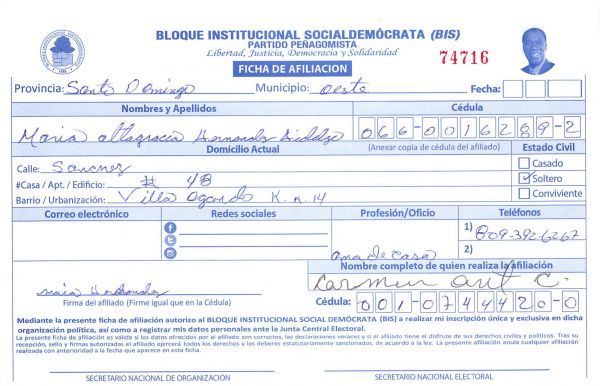 BLOQUE INSTITUCIONAL SOCIALDEMÓCRATA (BIS)
PARTIDO PEÑAGOMISTA
Libertad, Justicia, Democracia y Solidaridad
74716
FICHA DE AFILIACION
Provincia: Santo Domingo Municipio: Oeste Fecha:
Nombres y Apellidos Cédula
Maria altagracia Hernandez 066-0016289-2
Domicilio Actual (Anexar copia de cédula del afiliado) Estado Civil
Calle: Sanchez Casado
#Casa / Apt. / Edificio: # 48 Soltero
Barrio / Urbanización: Villa K.m.14 Conviviente
Correo electrónico Redes sociales Profesión/Oficio Teléfonos
1) 809-392-6267
2)
ama de casa
Nombre completo de quien realiza la afiliación
Carmen C.
Firma del afiliado (Firme igual que en la Cédula)
Cédula: 001-0744420-0
Mediante la presente ficha de afiliación autorizo al BLOQUE INSTITUCIONAL SOCIAL DEMÓCRATA (BIS) a realizar mi inscripción única y exclusiva en dicha
organización política, así como a registrar mis datos personales ante la Junta Central Electoral.
La presente ficha de afiliación es válida si los datos ofrecidos por el afiliado son correctos, las declaraciones veraces y si el afiliado tiene el disfrute de sus derechos civiles y políticos. Tras su
recepción, sello y firmas autorizadas el afiliado ejercerá todos los derechos y los deberes estatutariamente sancionados, de acuerdo a la ley. La presente afiliación anula cualquier afiliación
realizada con anterioridad a la fecha que aparece en esta ficha.
SECRETARIO NACIONAL DE ORGANIZACIÓN SECRETARIO NACIONAL ELECTORAL